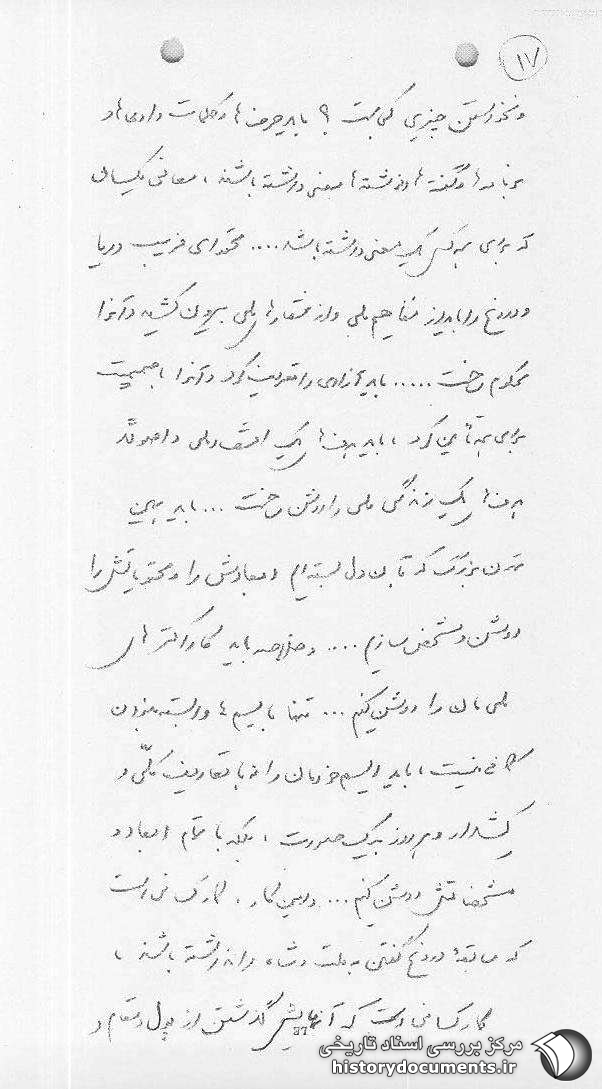 ۱۷
و نخواستن چیزی کی است ؟ باید حرف‌ها و کلمات و ادعاها و
برنامه‌ها و گفته‌ها و نوشته‌ها معنی داشته باشند ، معانی یکسان
که برای همه کس یک معنی داشته باشد .... محتوای فریب و ریا
و دروغ را باید از مفاهیم ملی و از شعارهای ملی بیرون کشید و آنرا
محکوم ساخت ..... باید آزادی را تعریف کرد و آنرا با صمیمیت
برای همه تأمین کرد ، باید هدف‌های یک ملی و اصولاً
هدف‌های یک زندگی ملی را روشن ساخت ... باید به این
تمدن بزرگ که به آن دل بسته‌ایم ابعادش را و محتویاتش را
روشن و مشخص سازیم .... و خلاصه باید کاراکترهای
ملی‌مان را روشن کنیم ... تنها با ایسم‌ها وابسته بودن
کافی نیست ، باید ایسم خودمان را نه با تعاریف کلّی و
کشدار و هر روز به یک صورت ، بلکه با تمام ابعاد و
مشخصاتش روشن کنیم ... و این کار ، کار کسانی است
که سابقهٔ دروغ گفتن به ملت و شاه را نداشته باشند ،
کار کسانی است که آزمایش گذشتن از پول و مقام و
37
مرکز بررسی اسناد تاریخی
historydocuments.ir